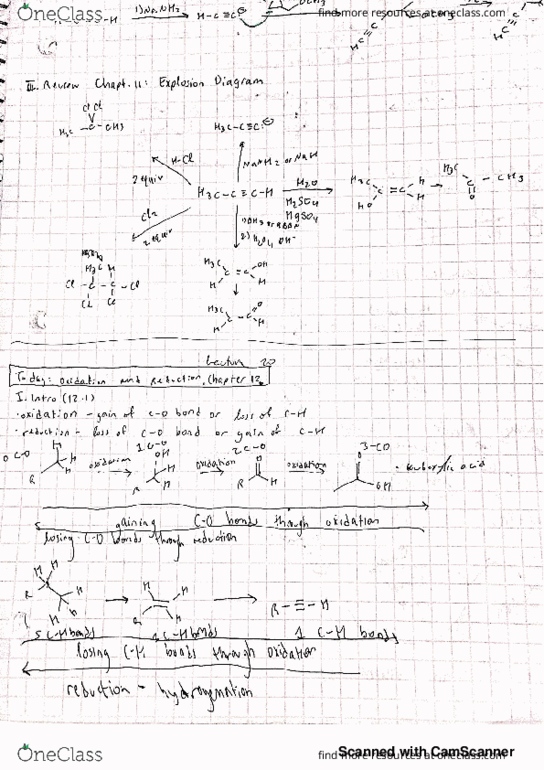 OneClass
find more resources at oneclass.com
1) NaNH2
H-C≡C⊖
III. Review Chapt. 11: Explosion Diagram
Cl Cl
H3C C CH3
H3C-C≡C:⊖
H-Cl
2 equiv
NaNH2 or NaH
H3C-C≡C-H
H2O
H2SO4
HgSO4
H3C C=C H
HO H
H3C C CH3
O
Cl2
2 equiv
2) H2O2 OH-
H3C H
Cl-C-C-Cl
Cl Cl
H3C C=C OH
H H
H3C C-C O
H
Lecture 20
Today: oxidation and reduction, Chapter 12
I. Intro (12.1)
·oxidation - gain of C-O bond or loss of C-H
·reduction - loss of C-O bond or gain of C-H
0 C-O
1 C-O
2 C-O
3-CO
H OH O O
R H oxidation R H oxidation R H oxidation OH
·carboxylic acid
gaining C-O bonds though oxidation
losing C-O bonds through reduction
H H H H
R H H R H
R-≡-H
5 C-H bonds
C-H bonds
1 C-H bonds
losing C-H bonds through oxidation
reduction - hydrogenation
OneClass
find more resources at oneclass.com
Scanned with CamScanner